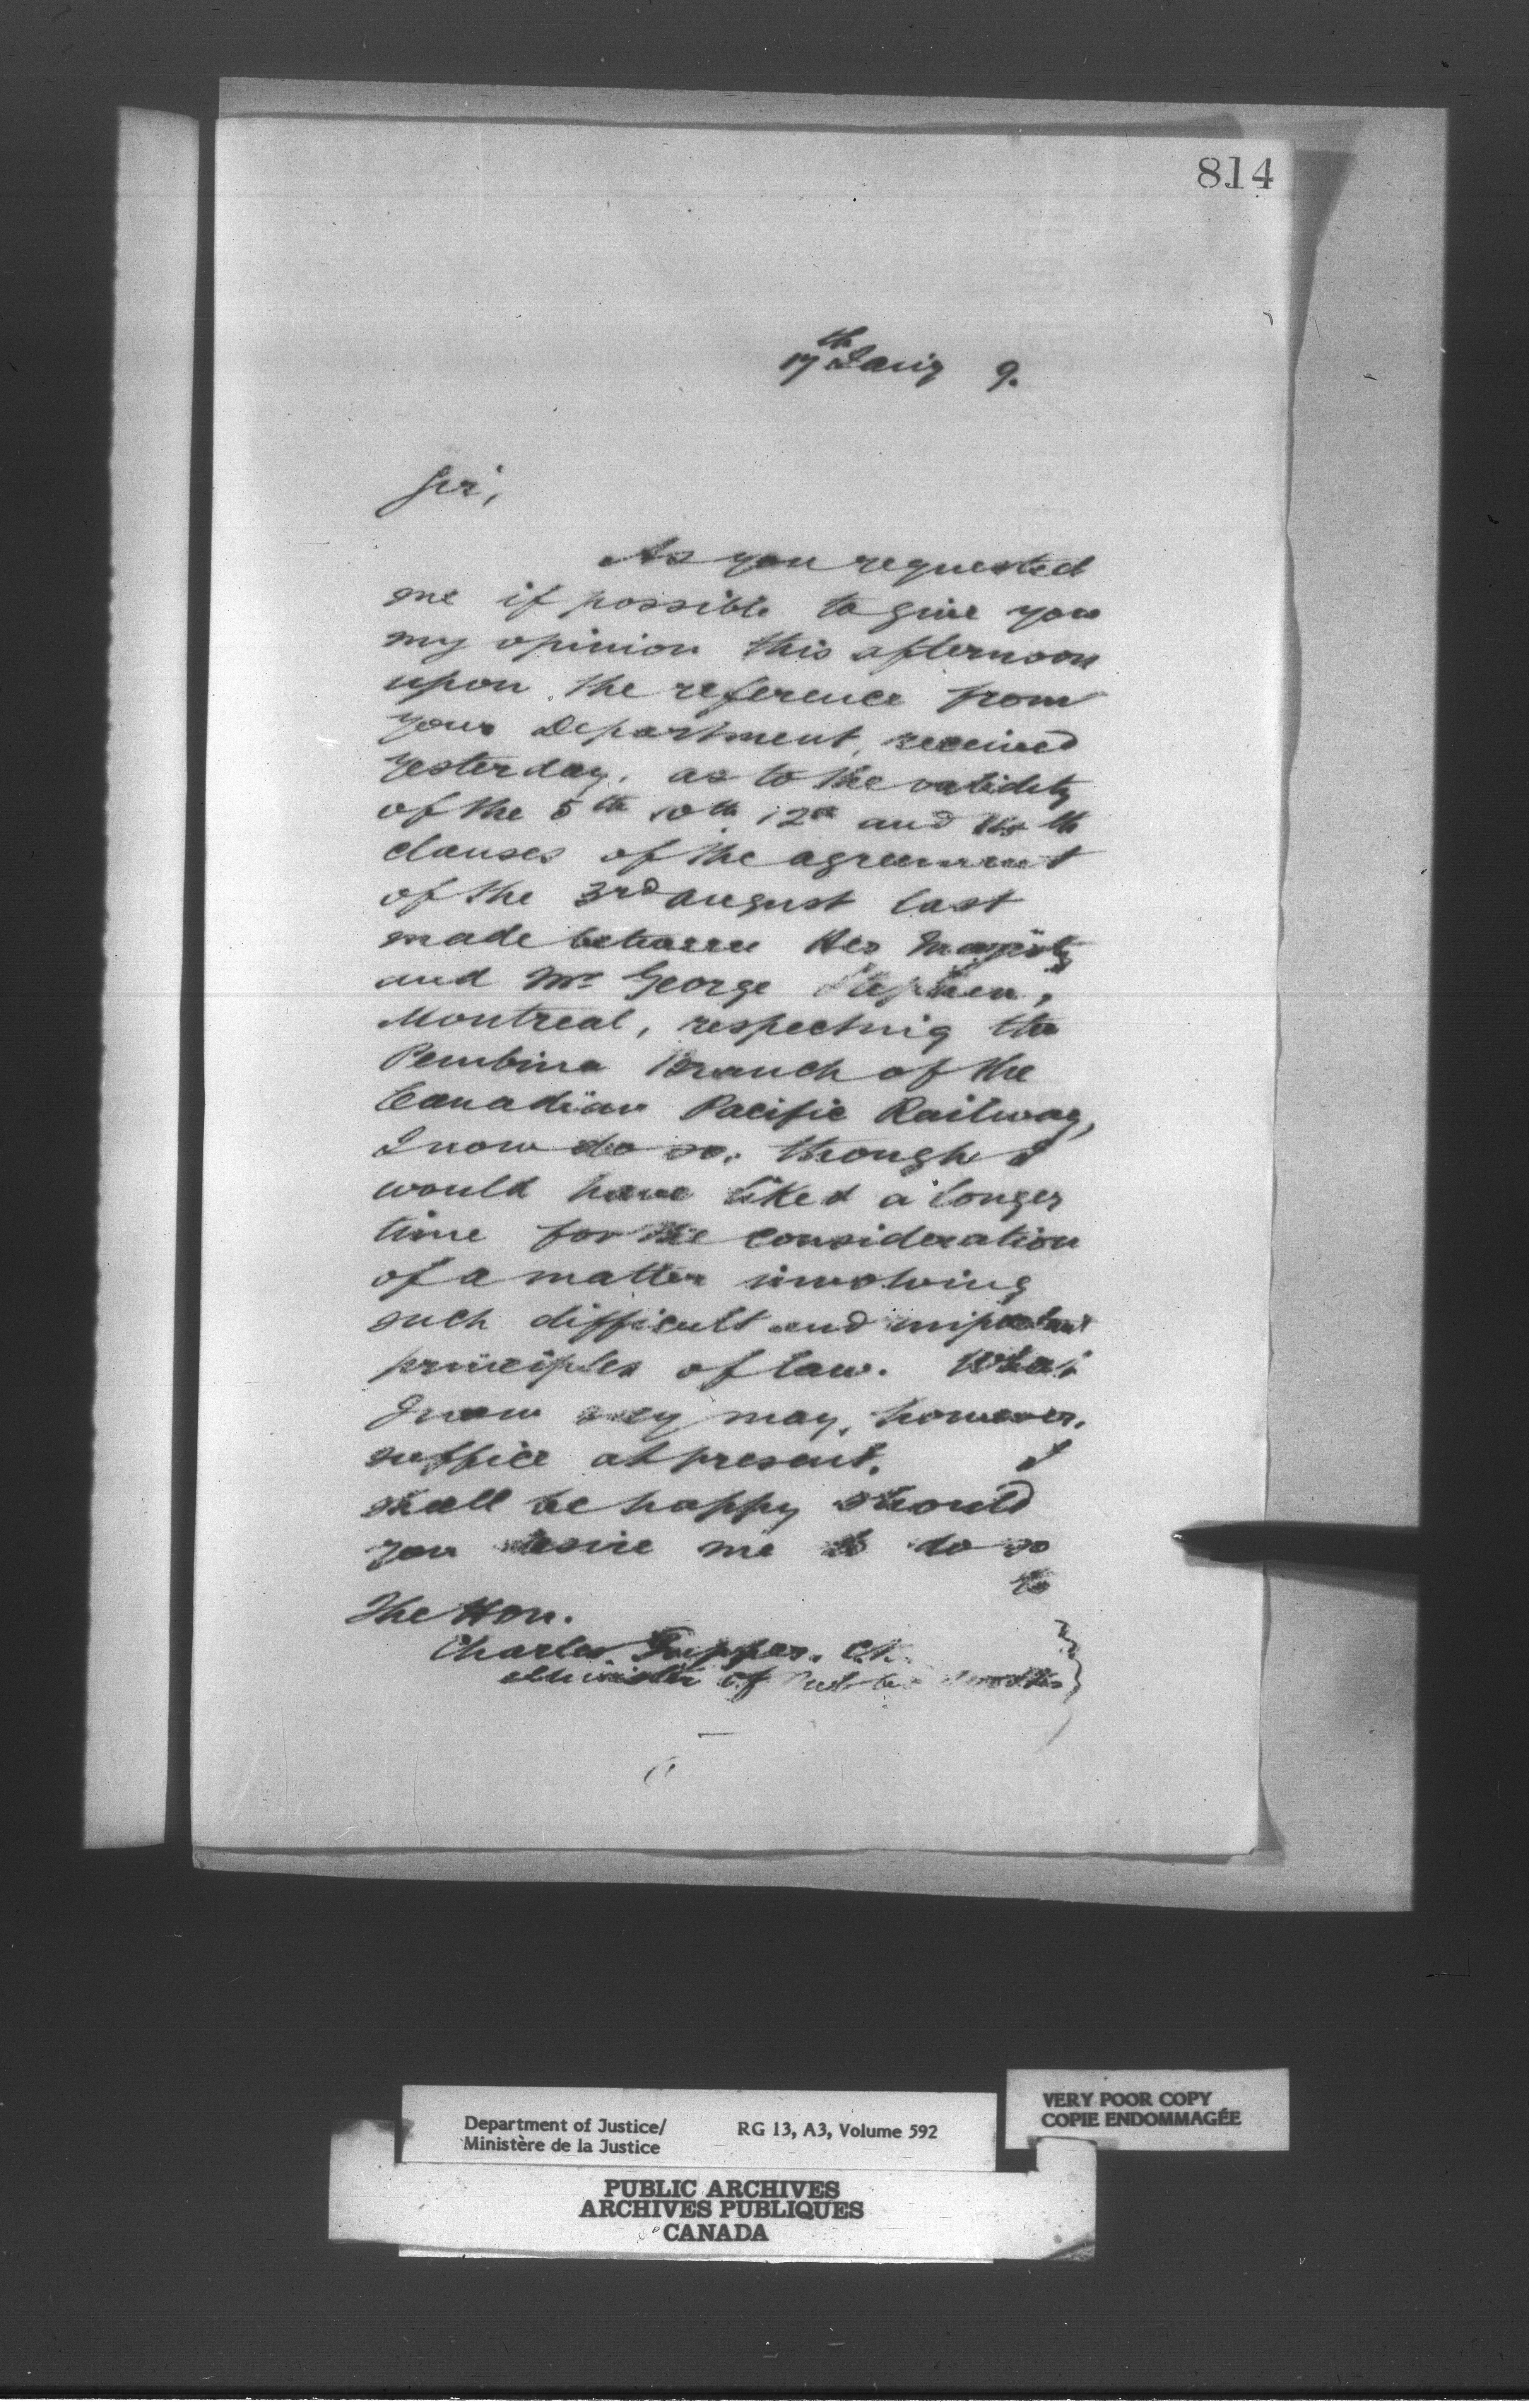 814
17th Jany 9.
Sir,
As you requested
me if possible to give you
my opinion this afternoon
upon the reference from
your Department, received
yesterday, as to the validity
of the 5th 10th 12th and th
clauses of the agreement
of the 3rd August last
made between Her Majesty
and Mr George Stephen,
Montreal, respecting the
Pembina Branch of the
Canadian Pacific Railway,
I now do so, though I
would have liked a longer
time for the consideration
of a matter involving
such difficult and important
principles of law. What
I now say may, however,
suffice at present. I
shall be happy should
you desire me to do so
to
The Hon.
Charles Tupper, C.B.
Minister of Public Works
Department of Justice/
Ministère de la Justice
RG 13, A3, Volume 592
VERY POOR COPY
COPIE ENDOMMAGÉE
PUBLIC ARCHIVES
ARCHIVES PUBLIQUES
CANADA